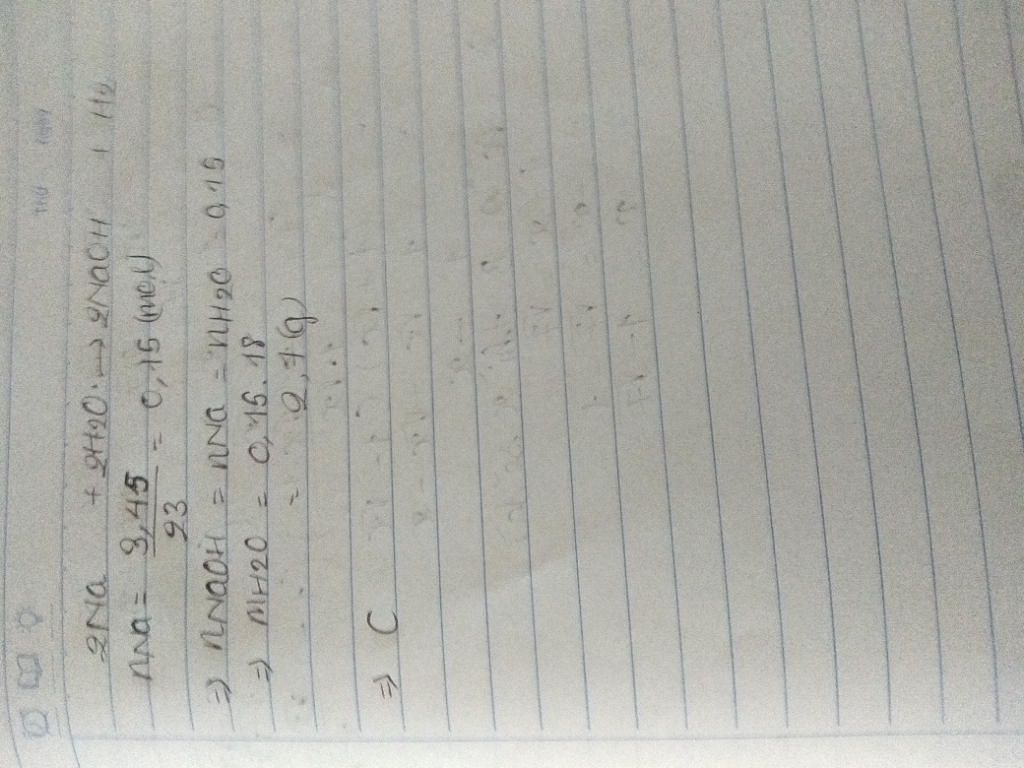 2Na + 2H2O → 2NaOH + H2
nNa = 3,45 / 23 = 0,15 (mol)
=> nNaOH = nNa = nH2O = 0,15
=> mH2O = 0,15.18
= 2,7 (g)
=> C